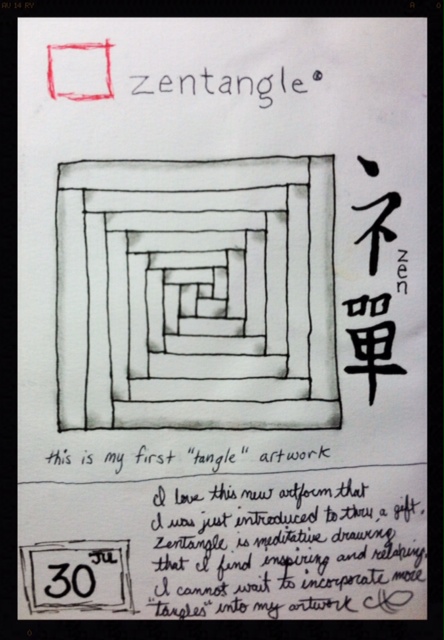 zentangle®
禪
zen
this is my first "tangle" artwork
I love this new artform that
I was just introduced to thru a gift.
Zentangle is meditative drawing
that I find inspiring and relaxing.
I cannot wait to incorporate more
"tangles" into my artwork
30 JUL